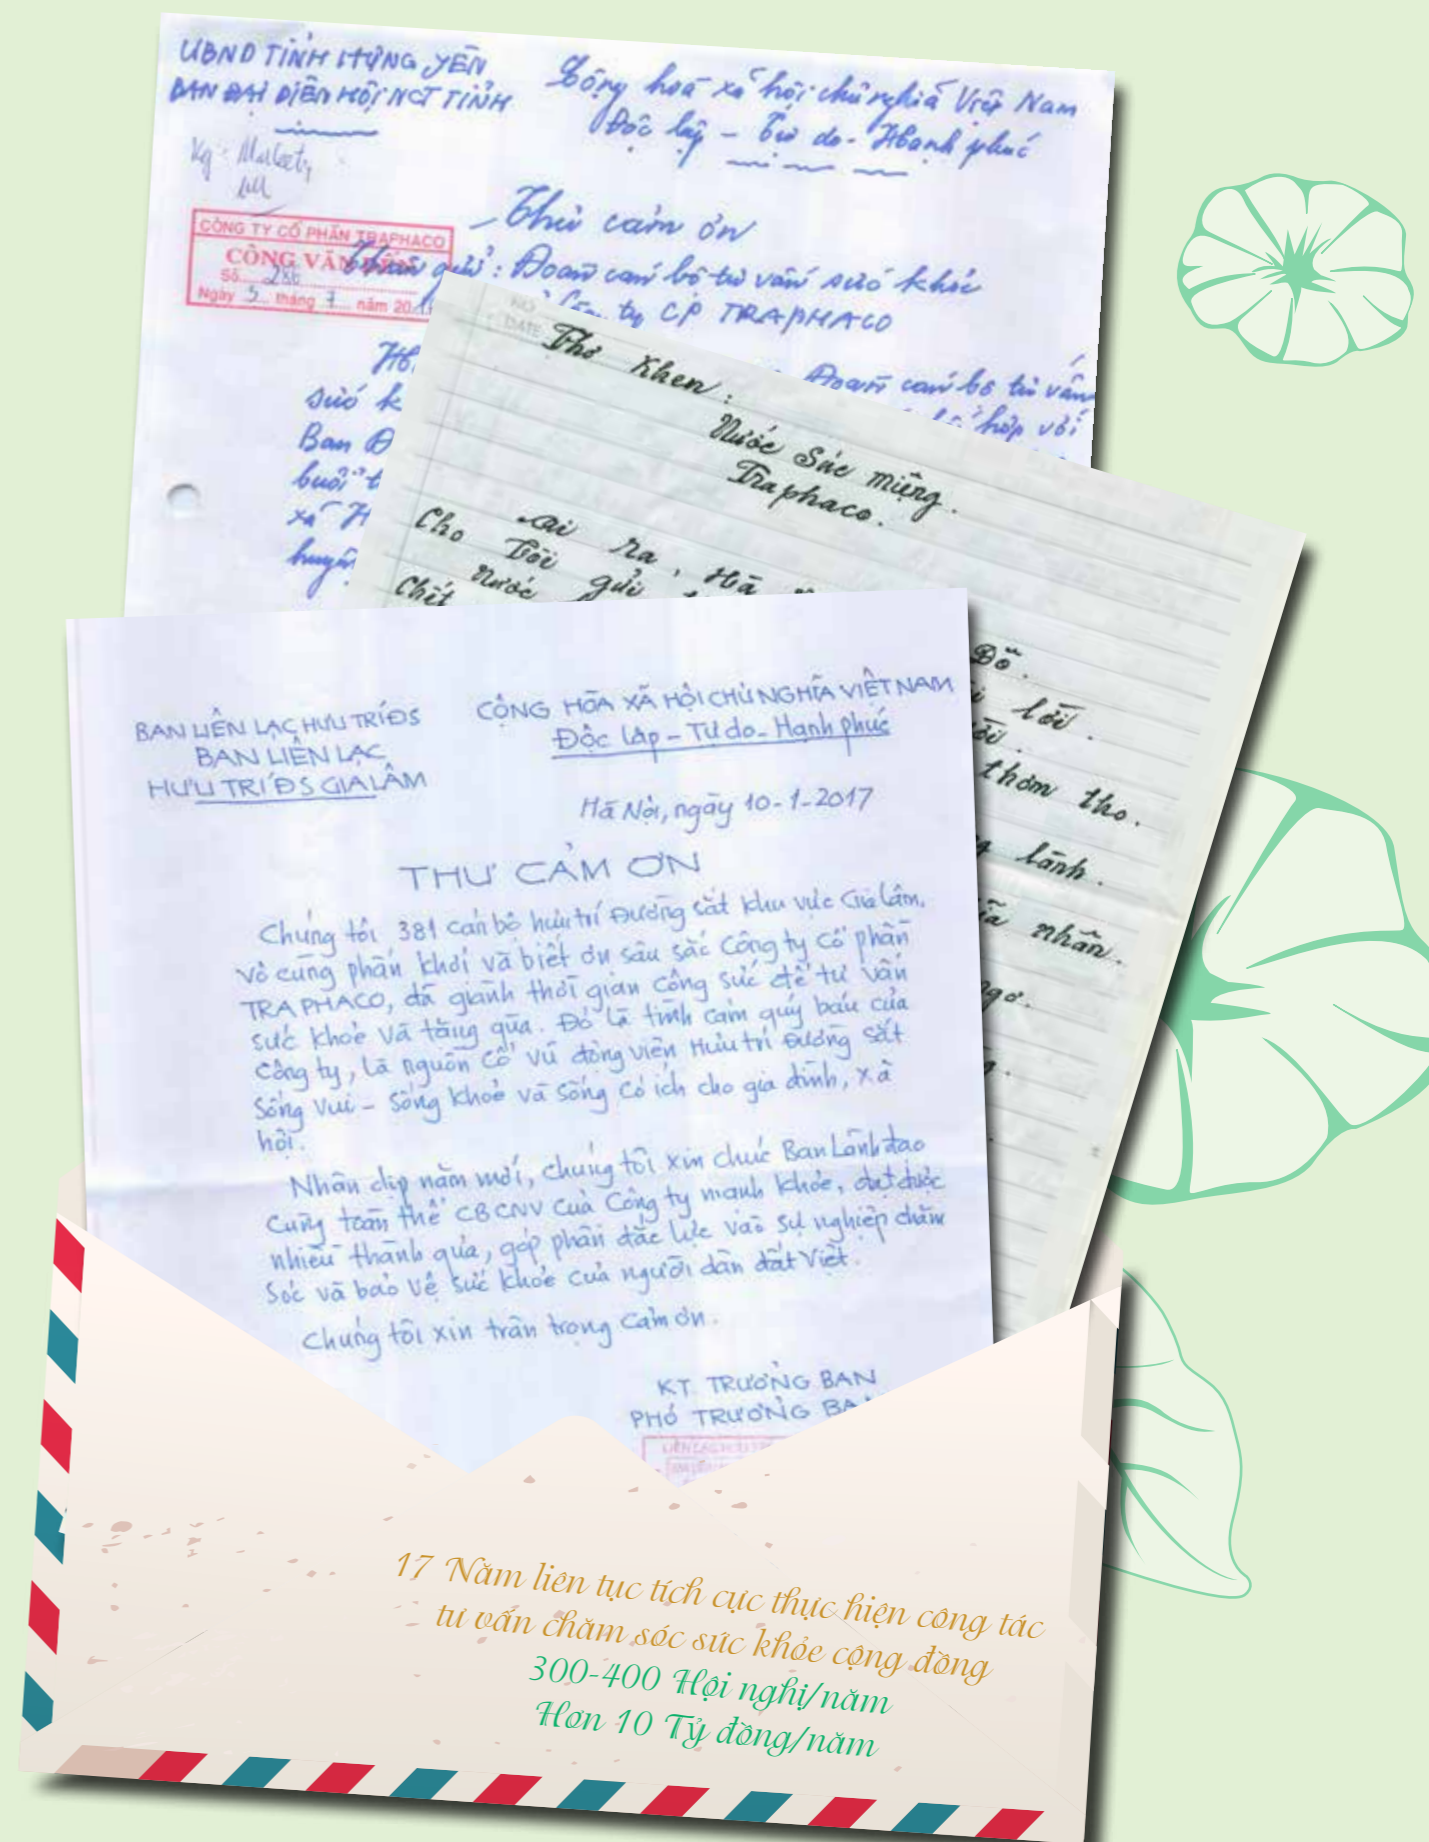 UBND TỈNH HƯNG YÊN
BAN ĐẠI DIỆN HỘI NCT TỈNH
Cộng hoà xã hội chủ nghĩa Việt Nam
Độc lập - Tự do - Hạnh phúc
Kg: Marketing
Thư cảm ơn
CÔNG TY CỔ PHẦN TRAPHACO
CÔNG VĂN ĐẾN
Số 286
Ngày 5 tháng 7 năm 20
gửi: Đoàn cán bộ tư vấn sức khỏe
ty CP TRAPHACO
Đoàn cán bộ tư vấn
sức k
hợp với
Ban Đ
buổi t
xã H
huyện
NO
DATE
Thơ Khen:
Nước Súc miệng.
Traphaco.
Ai ra, Hà
Cho Tôi gửi
Chết Nước
Đô.
lời.
thơm tho.
lành.
nhân.
BAN LIÊN LẠC HƯU TRÍ ĐS
BAN LIÊN LẠC
HƯU TRÍ ĐS GIA LÂM
CỘNG HÒA XÃ HỘI CHỦ NGHĨA VIỆT NAM
Độc lập - Tự do - Hạnh phúc
Hà Nội, ngày 10-1-2017
THƯ CẢM ƠN
Chúng tôi 381 cán bộ hưu trí Đường sắt khu vực Gia Lâm.
vô cùng phấn khởi và biết ơn sâu sắc Công ty Cổ phần
TRAPHACO, đã giành thời gian công sức để tư vấn
sức khoẻ và tặng quà. Đó là tình cảm quý báu của
Công ty, là nguồn cổ vũ động viên Hưu trí Đường sắt
Sống vui - Sống khoẻ và Sống có ích cho gia đình, xã
hội.
Nhân dịp năm mới, chúng tôi xin chúc Ban Lãnh đạo
cùng toàn thể CBCNV của Công ty mạnh khỏe, đạt được
nhiều thành quả, góp phần đắc lực vào sự nghiệp chăm
sóc và bảo vệ sức khỏe của người dân đất Việt.
Chúng tôi xin trân trọng cảm ơn.
KT TRƯỞNG BAN
PHÓ TRƯỞNG BA
17 Năm liên tục tích cực thực hiện công tác
tư vấn chăm sóc sức khỏe cộng đồng
300-400 Hội nghị/năm
Hơn 10 Tỷ đồng/năm